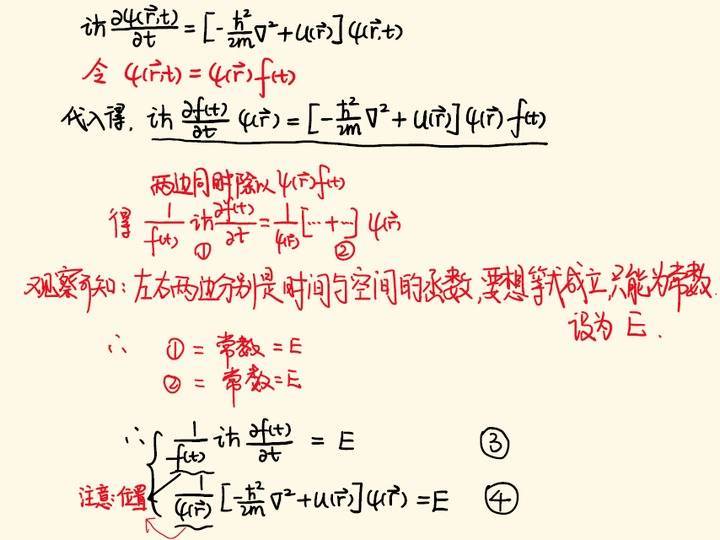 iħ ∂ψ(r⃗,t)/∂t = [-ħ²/2m ∇² + U(r⃗)] ψ(r⃗,t)
令 ψ(r⃗,t) = ψ(r⃗) f(t)
代入得, iħ ∂f(t)/∂t ψ(r⃗) = [-ħ²/2m ∇² + U(r⃗)] ψ(r⃗) f(t)
两边同时除以 ψ(r⃗)f(t)
得 1/f(t) iħ ∂f(t)/∂t = 1/ψ(r⃗) [… + …] ψ(r⃗)
① ②
观察可知：左右两边分别是时间与空间的函数，要想等式成立，只能为常数.
设为 E.
∴ ① = 常数 = E
② = 常数 = E
∴ { 1/f(t) iħ ∂f(t)/∂t = E ③
注意：位置 1/ψ(r⃗) [-ħ²/2m ∇² + U(r⃗)] ψ(r⃗) = E ④